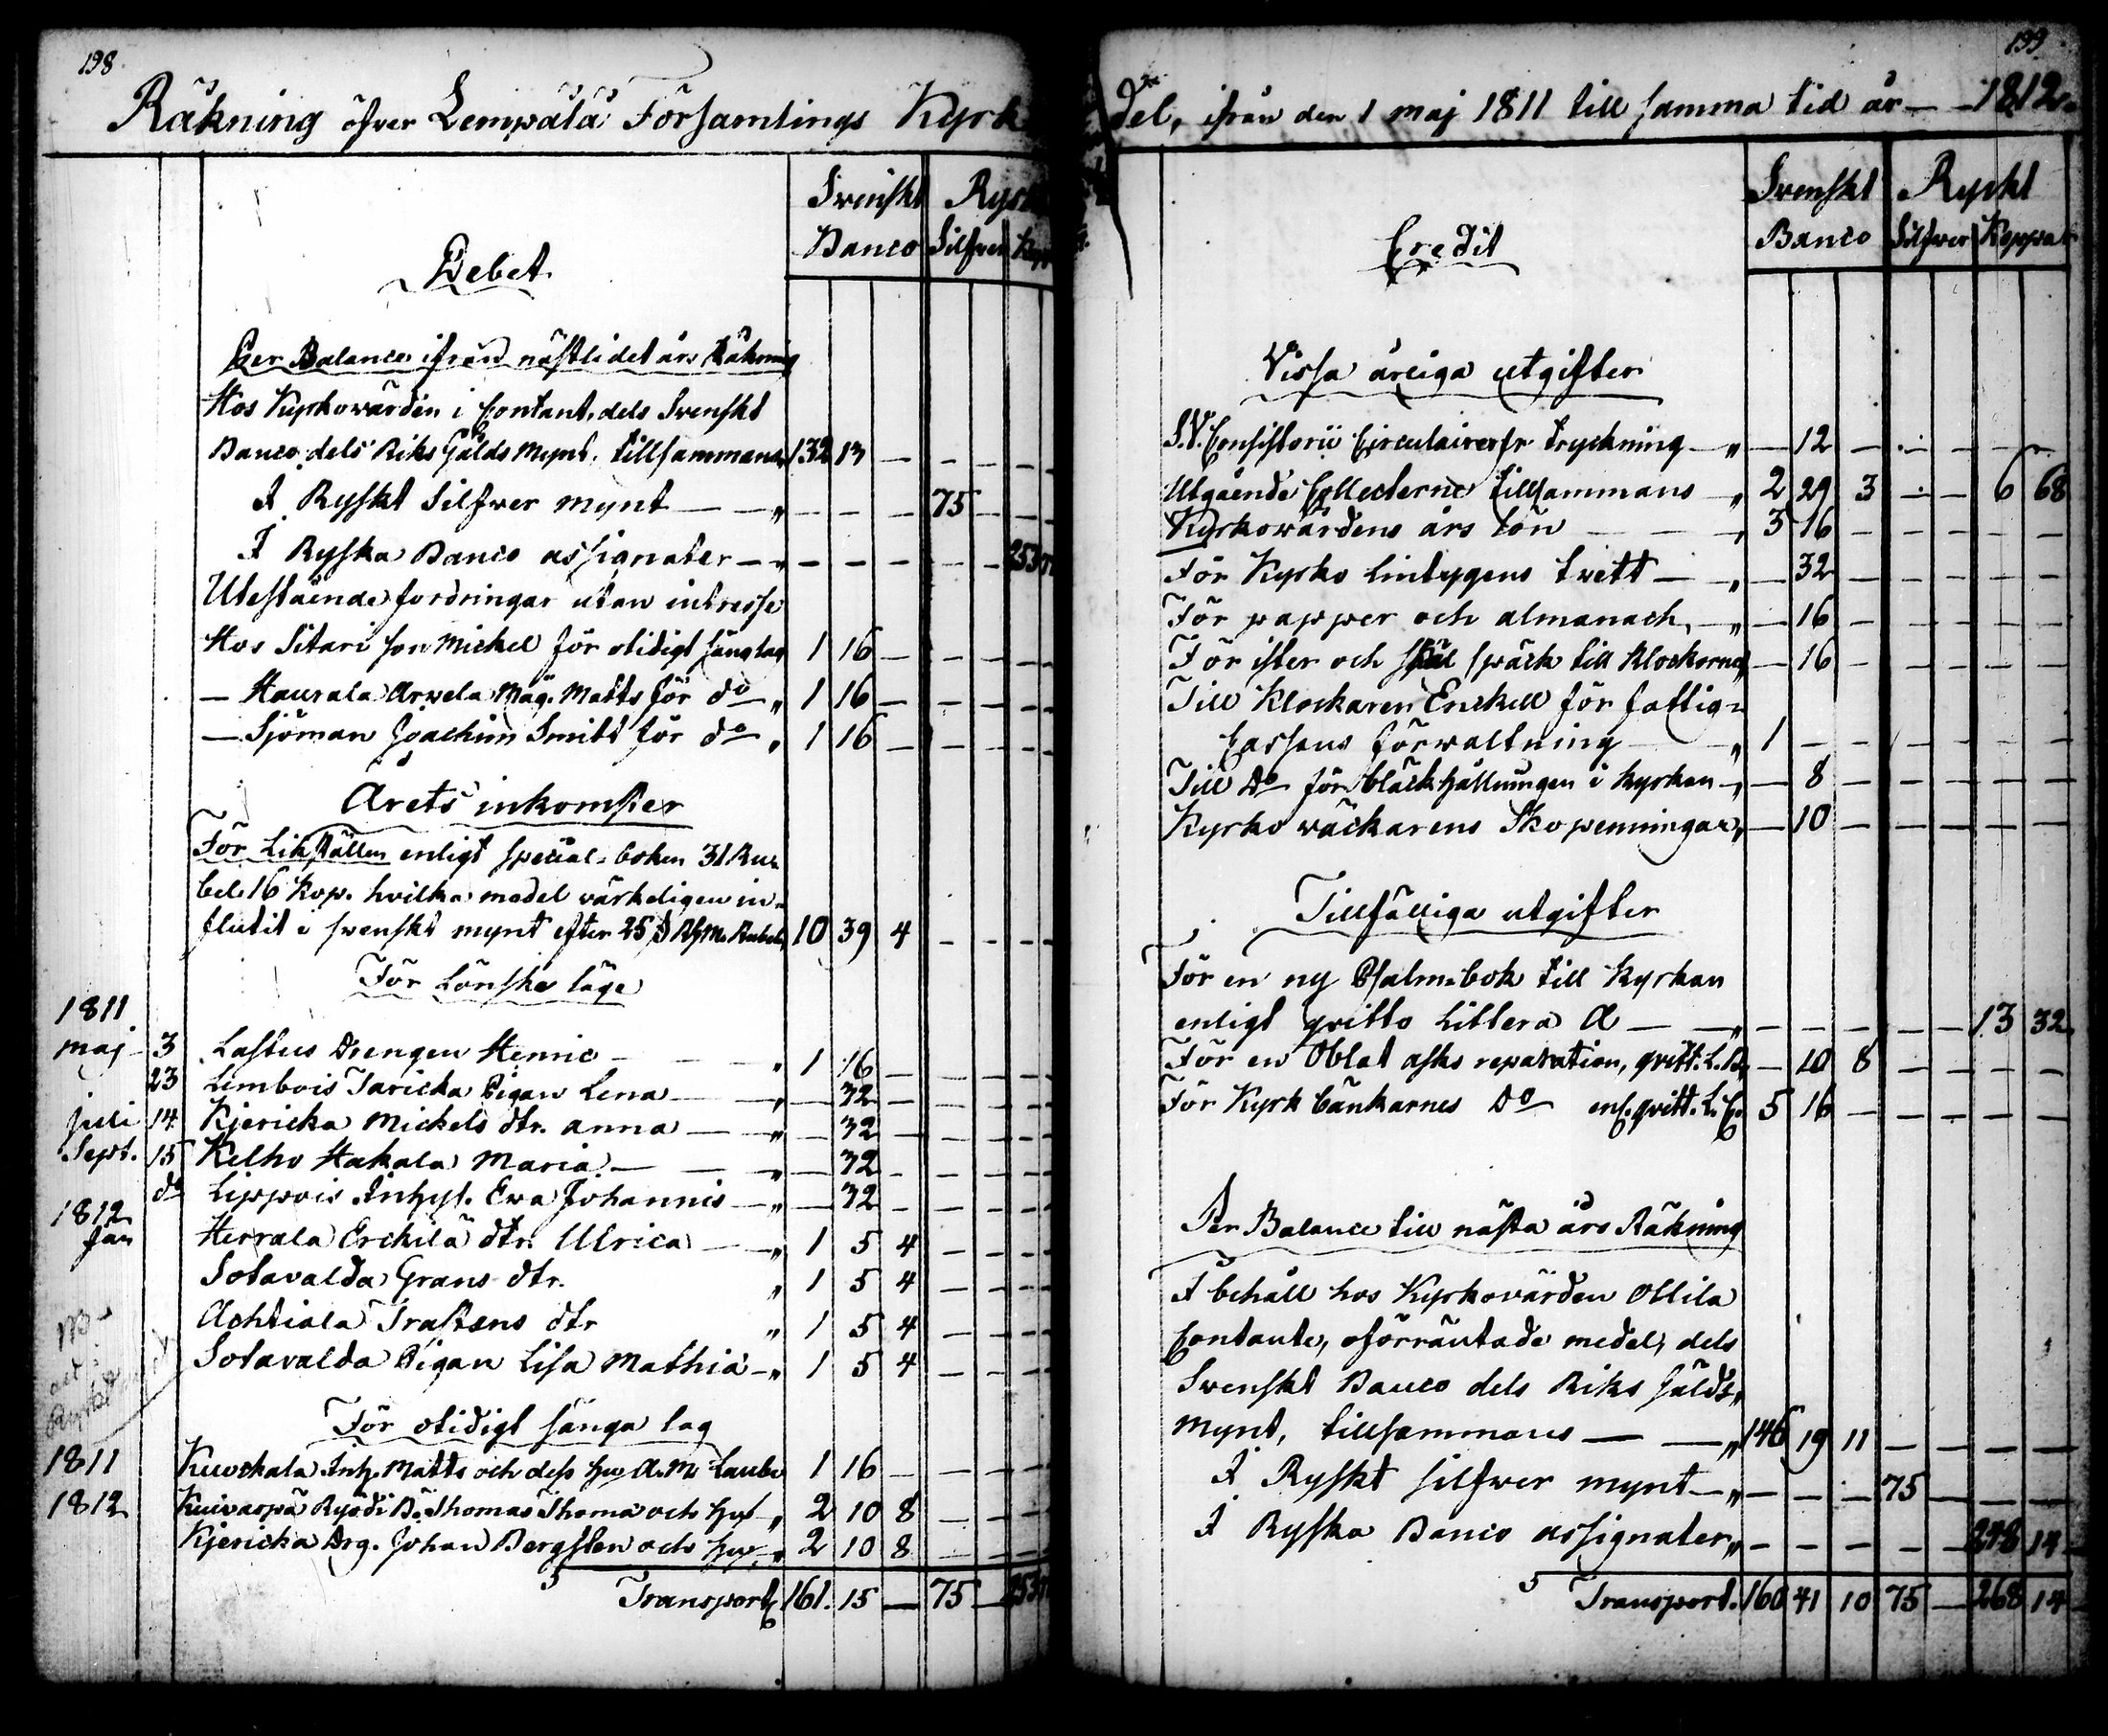 198
Räkning öfver Lempälä Församlings Kyrk
Svenskt Ryskt
Banco Silfwer
Debet
Per Balance ifrån nästlidet års Räkning
Hos Kyrkowärden i Contant, dels Svenskt
Banco dels Riks Gälds Mynt. tillsammans 132 13 — — — —
I Ryskt Silfwer mynt — „ — — — 75 — —
I Ryska Banco assignater — „ — — — — — 253
Utestående fordringar utan intresse
Hos Sitari son Michel för otidigt sänglag 1 16 — — — —
— Haurala Arwela Måg. Matts för do „ 1 16 — — — —
— Sjöman Joachim Smitt för do „ 1 16 — — — —
Årets inkomster
För Likställen enligt special-boken 31 Ru-
bel 16 Kop. hvilka medel värkeligen in-
flutit i svenskt mynt efter 25 Rubeln 10 39 4 — — —
För Lönska läge
1811
maj 3 Lastus Drengen Henric — „ 1 16 — — — —
23 Lembois Taricka Pigan Lena — „ — 32 — — — —
juli 14 Kjericka Michels dtr. anna — „ — 32 — — — —
Sept. 15 Kelho Hakala Maria — „ — 32 — — — —
do Lippois Inhys. Ewa Johannis — „ — 32 — — — —
1812
Jan Herrala Erckilä dtr. Ulrica — „ 1 5 4 — — —
Sotavalda Grans dtr. „ 1 5 4 — — —
Achtiala Trastens dtr „ 1 5 4 — — —
Sotavalda Pigan Lisa Mathiæ — „ 1 5 4 — — —
För otidigt sänga lag
1811 Kuockala Inh. Matts och dess hu A. M. 1 16 — — — —
1812 Kuivaspä Ryödi B. Thomas Thoma och hu „ 2 10 8 — — —
Kjericka Drg. Johan Bergsten och hu „ 2 10 8 — — —
Transport 161. 15 — 75 — 253
199
del, ifrån den 1 maj 1811 till samma tid år — — 1812.
Svenskt Ryskt
Banco Silfwer Koppar
Credit
Vissa årliga utgifter
S.V. Consistorii Circulairers tryckning — „ — 12 — — — — —
Utgående Collecterne tillsammans „ 2 29 3 — — 6 68
Kyrkowärdens års lön — — „ 3 16 — — — — —
För Kyrko lintygens tvett — „ — 32 — — — — —
För papper och almanach, — „ — 16 — — — — —
För ister och späck till Klockorna — 16 — — — — —
Till Klockaren Enckell för fattig-
Cassans förwaltning „ 1 — — — — — —
Till Do för bläckhållningen i Kyrkan — „ — 8 — — — — —
Kyrko väckarens Skopenningar „ — 10 — — — — —
Tillfälliga utgifter
För en ny Psalm-bok till Kyrkan
enligt qvitto Littera A — — „ — — — — — 13 32
För en Oblat asks reparation, qvitt. L. B. — 10 8 — — — —
För Kyrk bänkarnes Do enl. qvitt. L. C. 5 16 — — — — —
Per Balance till nästa års Räkning
I behåll hos Kyrkovärden Ollila
Contante, oförräntade medel, dels
Svenskt Banco dels Riks Gälds
Mynt, tillsammans — — „ 146 19 11 — — — —
I Ryskt silfwer mynt — „ — — — 75 — — —
I Ryska Banco assignater „ — — — — — 248 14
Transport. 160 41 10 75 — 268 14